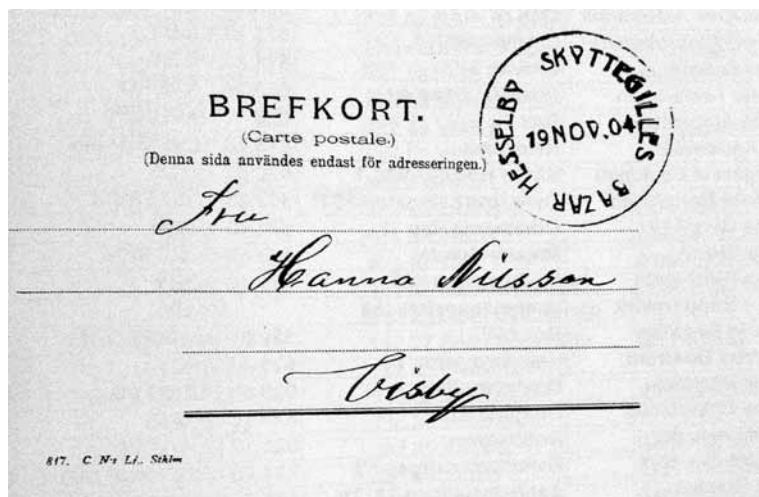 BREFKORT.
(Carte postale.)
(Denna sida användes endast för adresseringen.)
HESSELBY SKYTTEGILLES BAZAR
19 NOV. 04
Fru
Hanna Nilsson
Visby
817. C N:s Li., Sthlm